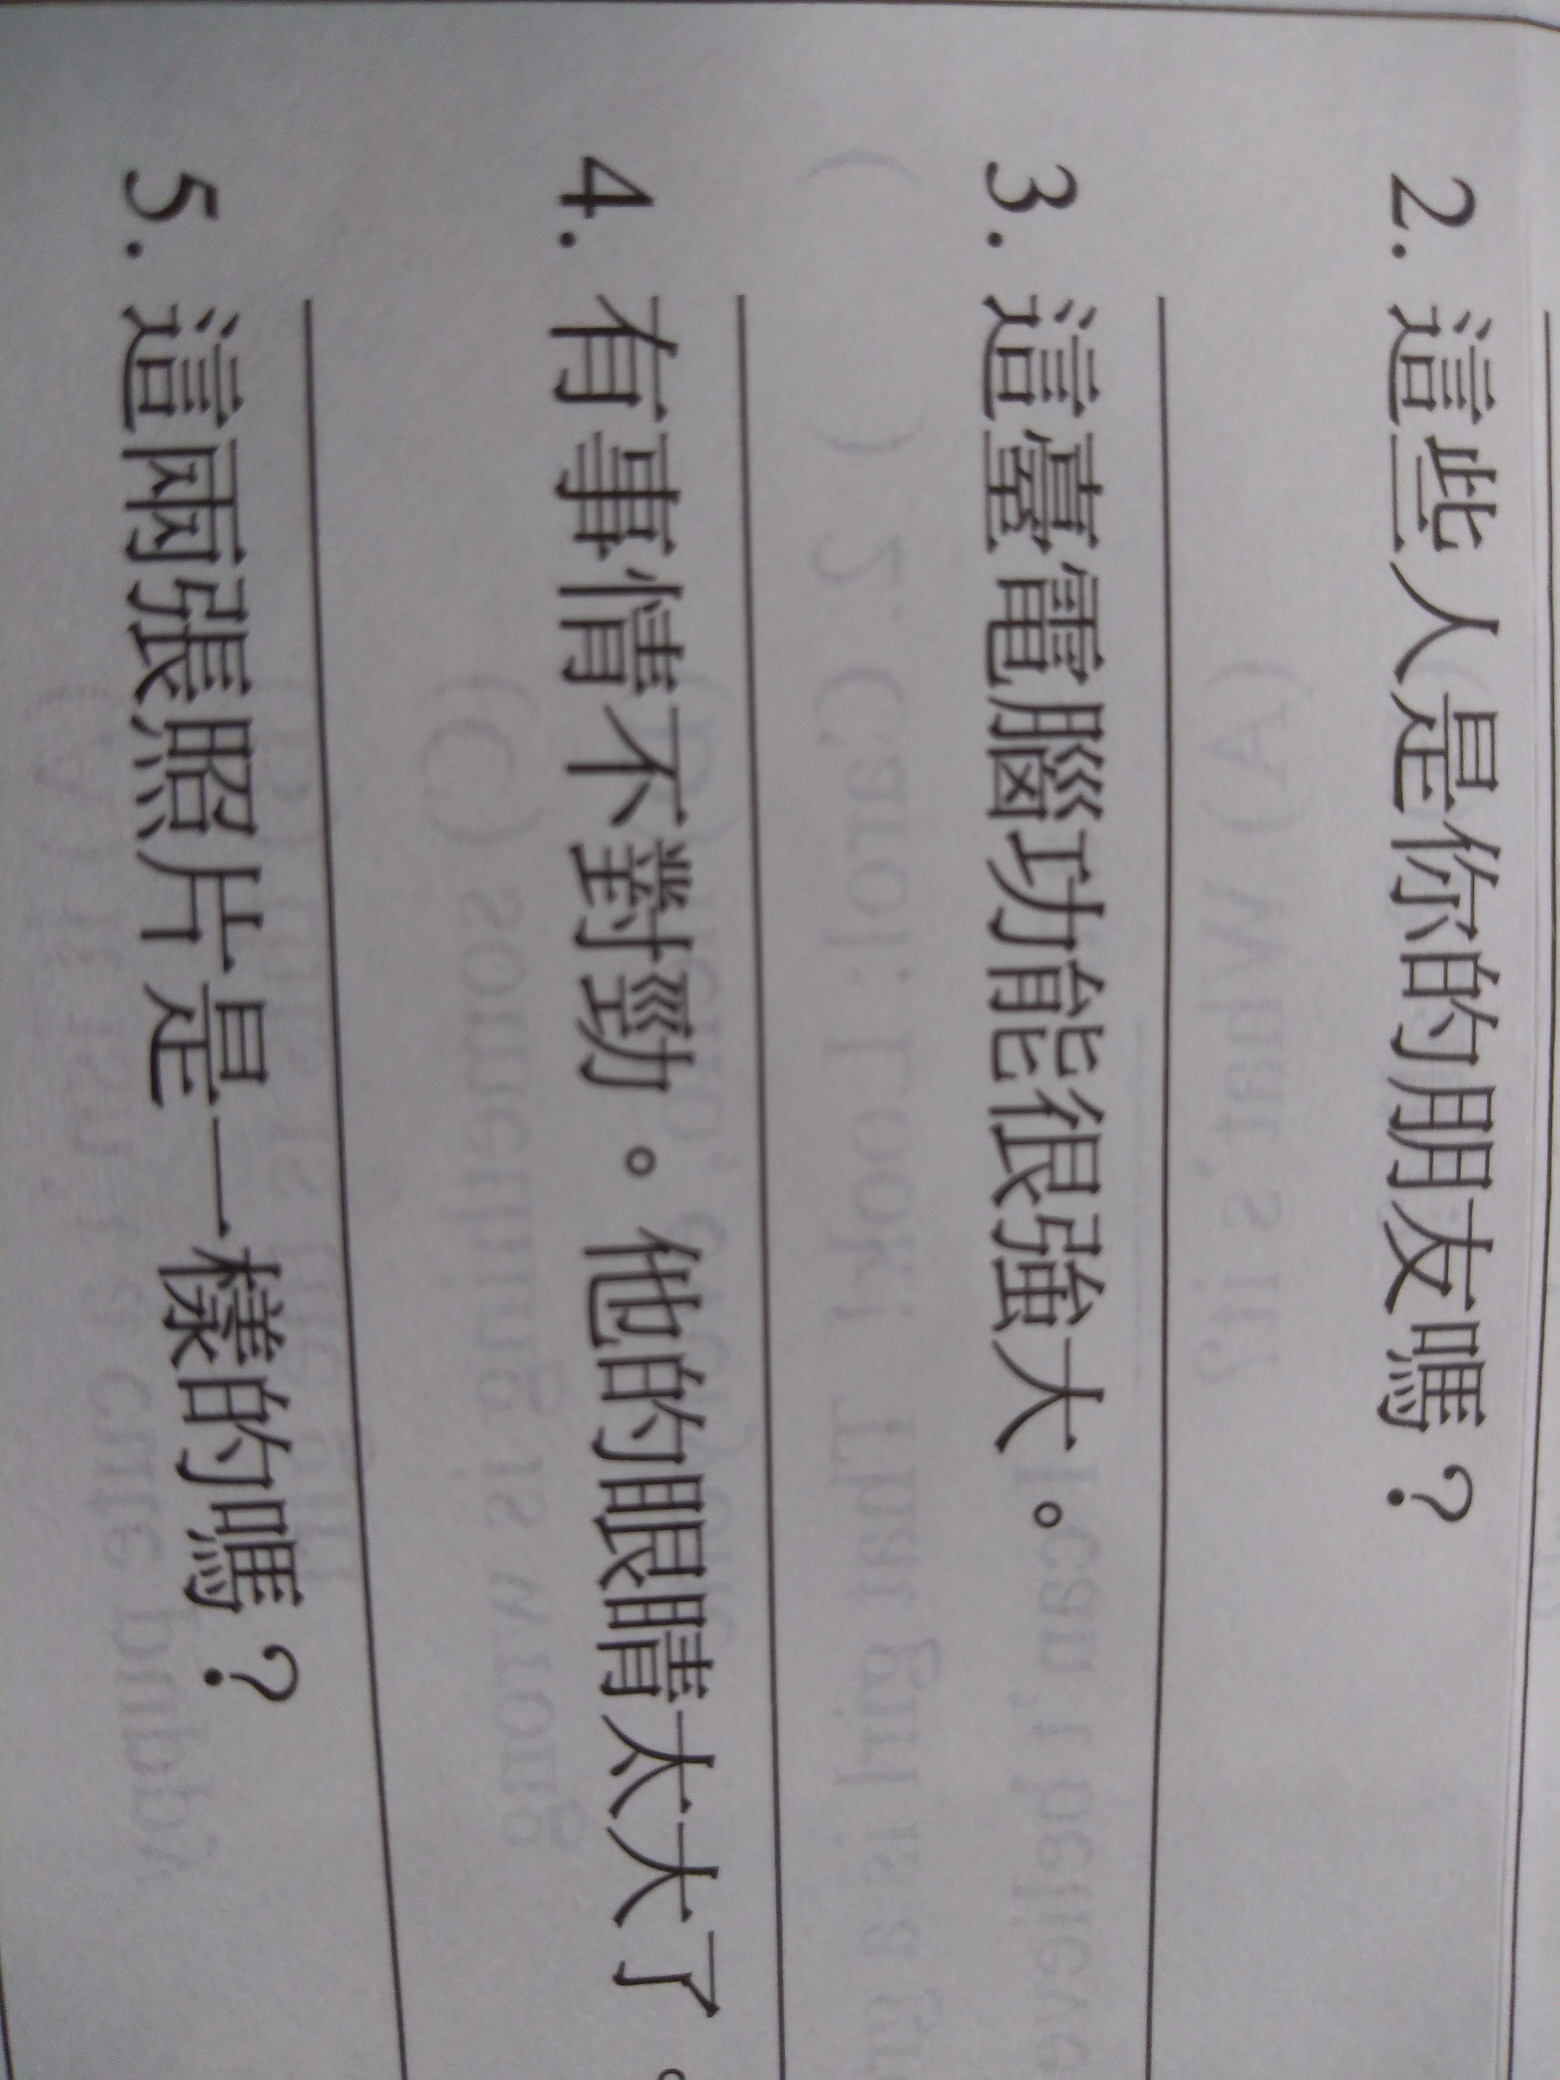 2. 這些人是你的朋友嗎？
3. 這臺電腦功能很強大。
4. 有事情不對勁。他的眼睛太大了。
5. 這兩張照片是一樣的嗎？